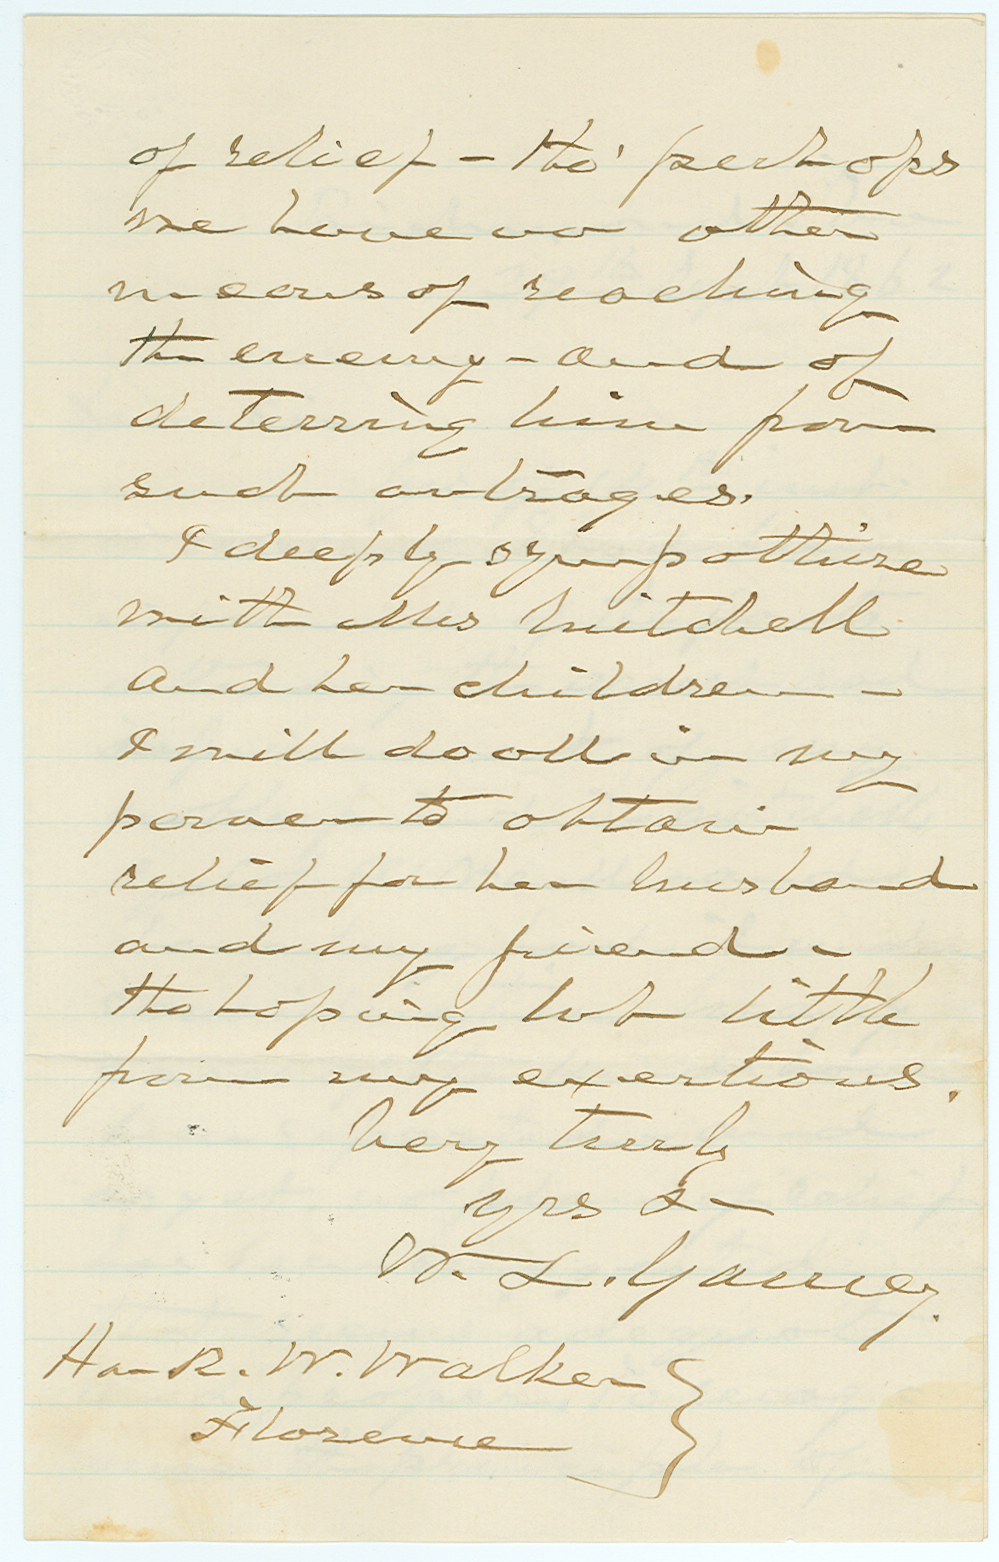 of relief – tho' perhaps
we have no other
means of reaching
the enemy – and of
deterring him from
such outrages.
I deeply sympathise
with Mrs Mitchell
and her children –
I will do all in my
power to obtain
relief for her husband
and my friend –
tho hoping but little
from my exertions.
Very truly
yrs &–
W. L. Yancey.
Hon R. W. Walker
Florence